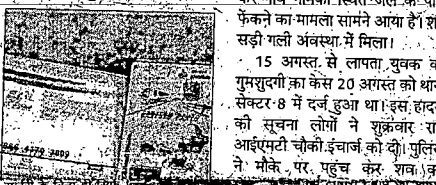 फेंकने का मामला सामने आया है। श
सड़ी गली अवस्था में मिला।
15 अगस्त से लापता युवक क
गुमशुदगी का केस 20 अगस्त को थान
सेक्टर-8 में दर्ज हुआ था। इस हाद
की सूचना लोगों ने शुक्रवार रा
आईएमटी चौकी इंचार्ज को दी। पुलिस
ने मौके पर पहुंच कर शव क